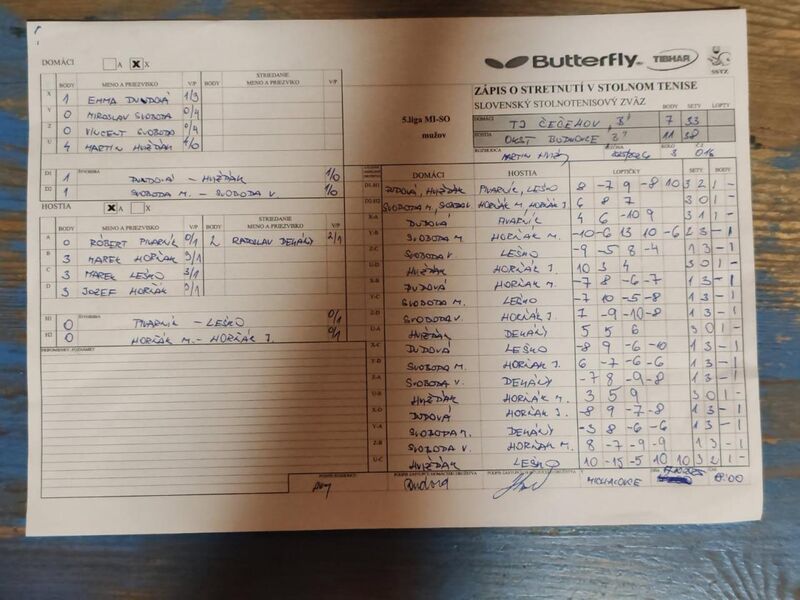 DOMÁCI A X
BODY MENO A PRIEZVISKO V/P BODY STRIEDANIE MENO A PRIEZVISKO V/P
X 1 EMMA DUDOVÁ 1/3
Y 0 MIROSLAV SVOBODA 0/4
Z 0 VINCENT SVOBODA 0/4
U 4 MARTIN HVIŽĎÁK 4/0
D1 ŠTVORHRA
1 DUDOVÁ - HVIŽĎÁK 1/0
D2
1 SVOBODA M. - SVOBODA V. 1/0
HOSTIA A X
BODY MENO A PRIEZVISKO V/P BODY STRIEDANIE MENO A PRIEZVISKO V/P
A 0 RÓBERT PIVARNÍK 0/1 2 RADOSLAV DEHÁNY 2/1
B 3 MAREK HORŇÁK 3/1
C 3 MAREK LEŠKO 3/1
D 3 JOZEF HORŇÁK 3/1
H1 ŠTVORHRA
0 PIVARNÍK - LEŠKO 0/1
H2
0 HORŇÁK M. - HORŇÁK J. 0/1
PRIPOMIENKY, POZNÁMKY
Butterfly TIBHAR SSTZ
5.liga MI-SO
mužov
ZÁPIS O STRETNUTÍ V STOLNOM TENISE
SLOVENSKÝ STOLNOTENISOVÝ ZVÄZ BODY SETY LOPTY
DOMÁCI TJ ČEČEHOV "B" 7 33
HOSTIA OKST BUDKOVCE "B" 11 38
ROZHODCA SEZÓNA KOLO Č.Z.
2025/2026 3 016
DOMÁCI HOSTIA LOPTIČKY SETY BODY
D1-H1 DUDOVÁ, HVIŽĎÁK PIVARNÍK, LEŠKO 8 -7 9 -8 10 3 2 1 -
D2-H2 SVOBODA M., SVOBODA V. HORŇÁK M. HORŇÁK J. 6 8 7 3 0 1 -
X-A DUDOVÁ PIVARNÍK 4 6 -10 9 3 1 1 -
Y-B SVOBODA M. HORŇÁK M. -10 -6 13 10 -6 2 3 - 1
Z-C SVOBODA V. LEŠKO -9 -5 8 -4 1 3 - 1
U-D HVIŽĎÁK HORŇÁK J. 10 3 4 3 0 1 -
X-B DUDOVÁ HORŇÁK M. -7 8 -6 -7 1 3 - 1
Y-C SVOBODA M. LEŠKO -7 10 -5 -8 1 3 - 1
Z-D SVOBODA V. HORŇÁK J. 7 -9 -10 -8 1 3 - 1
U-A HVIŽĎÁK DEHÁNY 5 5 6 3 0 1 -
X-C DUDOVÁ LEŠKO -8 9 -6 -10 1 3 - 1
Y-D SVOBODA M. HORŇÁK J. 6 -7 -6 -6 1 3 - 1
Z-A SVOBODA V. DEHÁNY -7 8 -9 -8 1 3 - 1
U-B HVIŽĎÁK HORŇÁK M. 3 5 9 3 0 1 -
X-D DUDOVÁ HORŇÁK J. -8 9 -7 -8 1 3 - 1
Y-A SVOBODA M. DEHÁNY -3 8 -6 -6 1 3 - 1
Z-B SVOBODA V. HORŇÁK M. 8 -7 -9 -9 1 3 - 1
U-C HVIŽĎÁK LEŠKO 10 -15 -5 10 10 3 2 1 -
PODPIS ROZHODCU PODPIS ZÁSTUPCU DOMÁCEHO DRUŽSTVA
Dudová MICHALOVCE